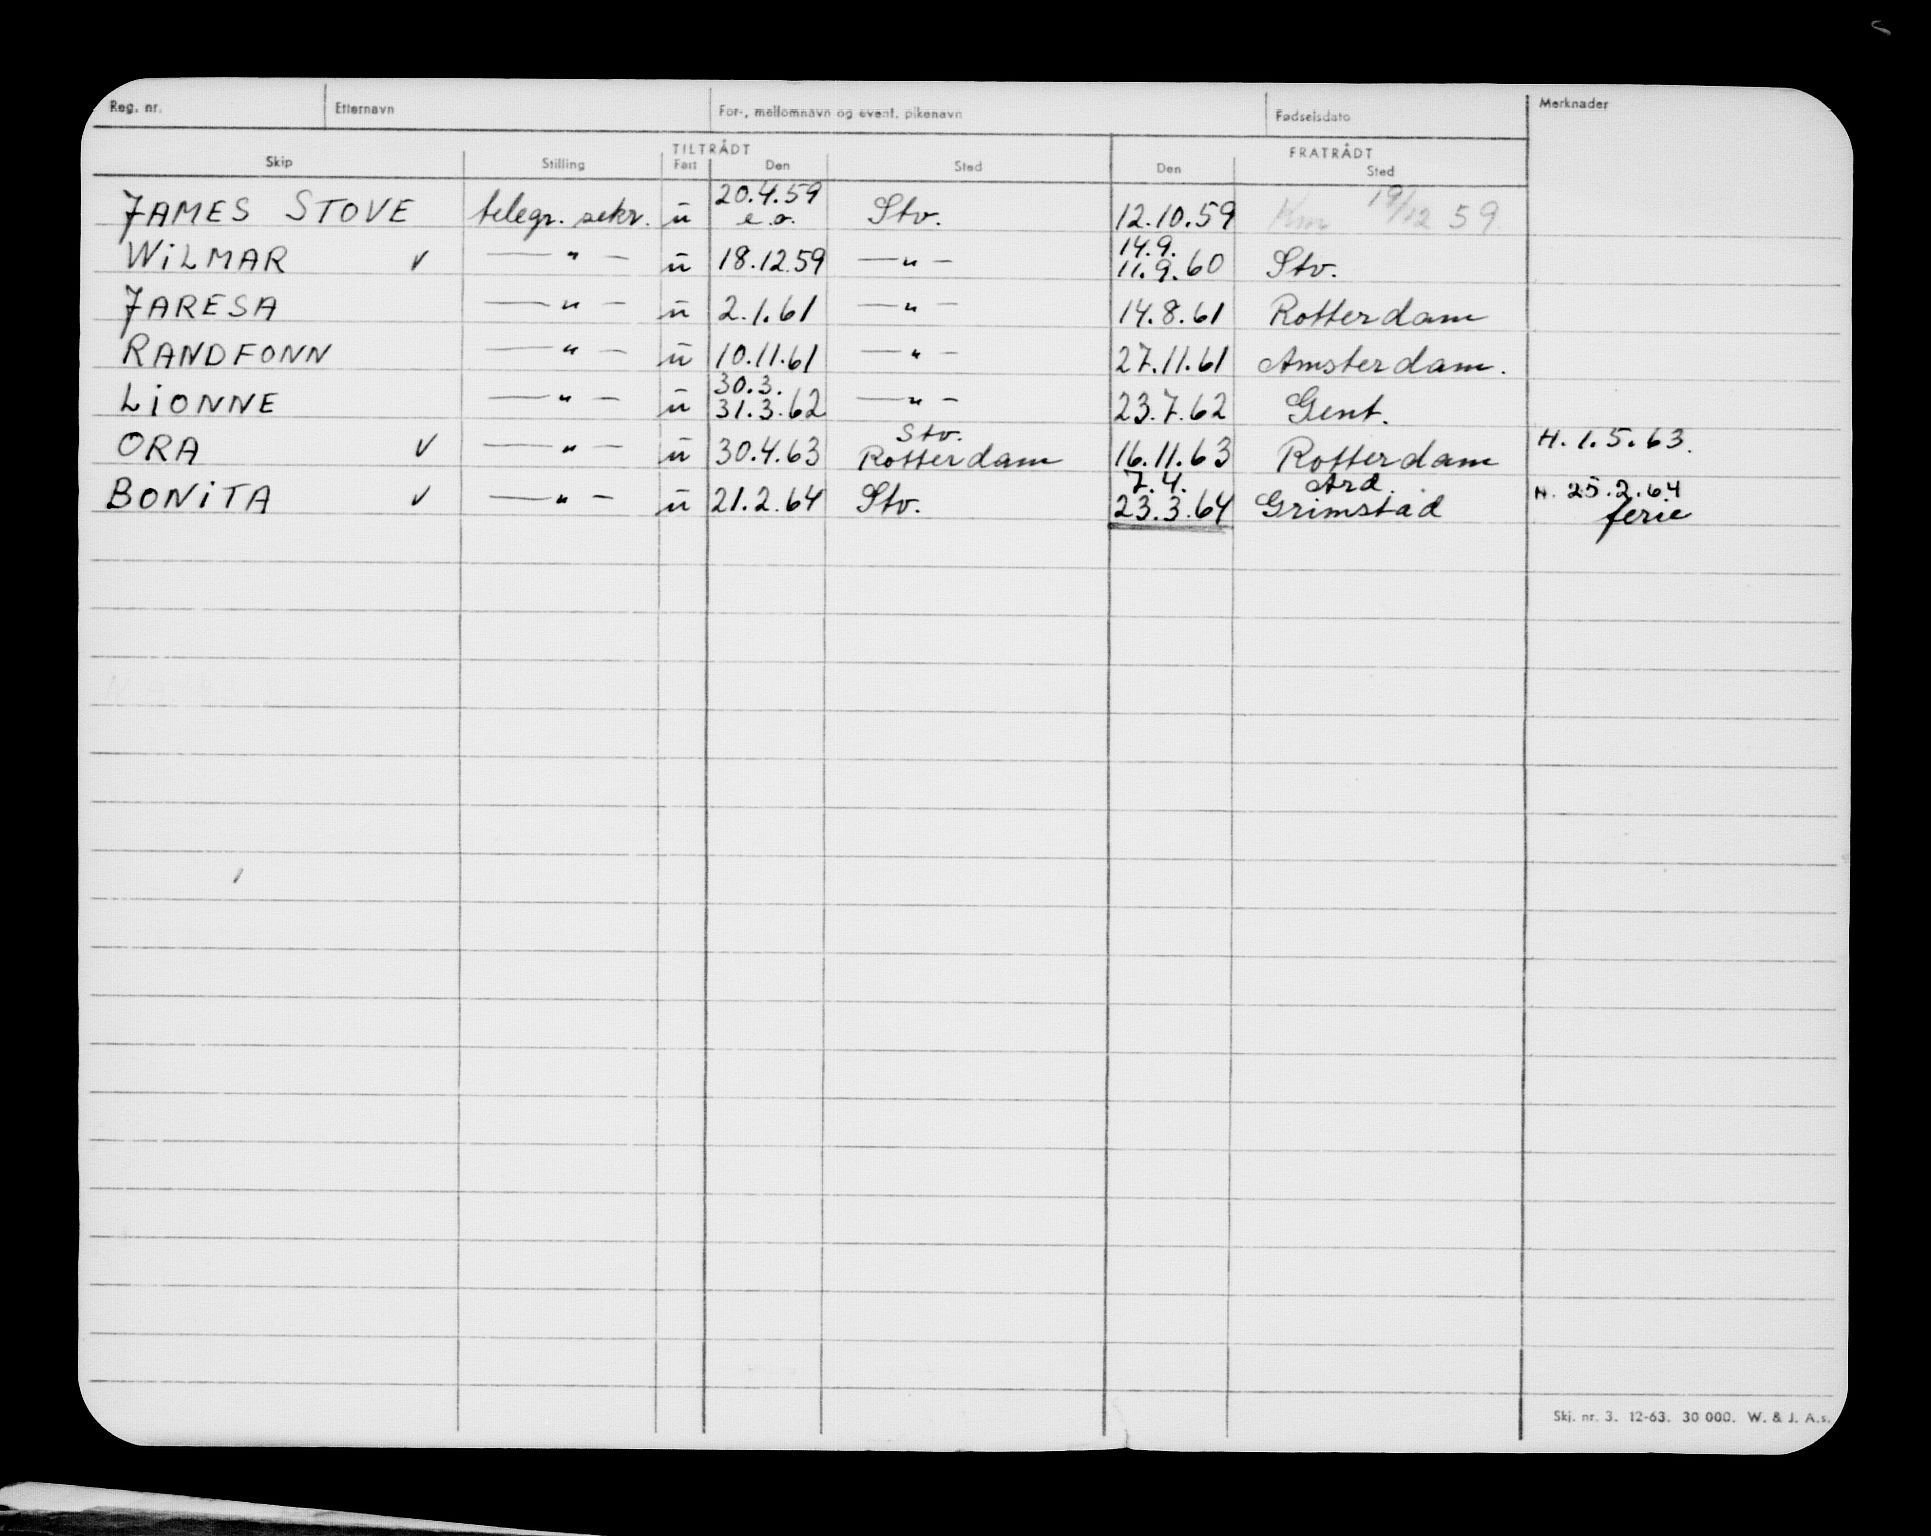 Reg. nr. Etternavn For-, mellomnavn og event. pikenavn Fødselsdato Merknader
TILTRÅDT FRATRÅDT
Skip Stilling Fart Den Sted Den Sted
20.4.59 19/12 59
JAMES STOVE telegr. sekr. u e.o. Stv. 12.10.59
14.9.
WiLMAR v — " — u 18.12.59 — " — 11.9.60 Stv.
JARESA — " — u 2.1.61 — " — 14.8.61 Rotterdam
RANDFONN — " — u 10.11.61 — " — 27.11.61 Amsterdam.
30.3.
LiONNE — " — u 31.3.62 — " — 23.7.62 Gent.
Stv.
ORA v — " — u 30.4.63 Rotterdam 16.11.63 Rotterdam H. 1.5.63.
7.4. Ard.
BONiTA v — " — u 21.2.64 Stv. 23.3.64 Grimstad H. 25.2.64
ferie
Skj. nr. 3. 12-63. 30 000. W. & J. A.s.